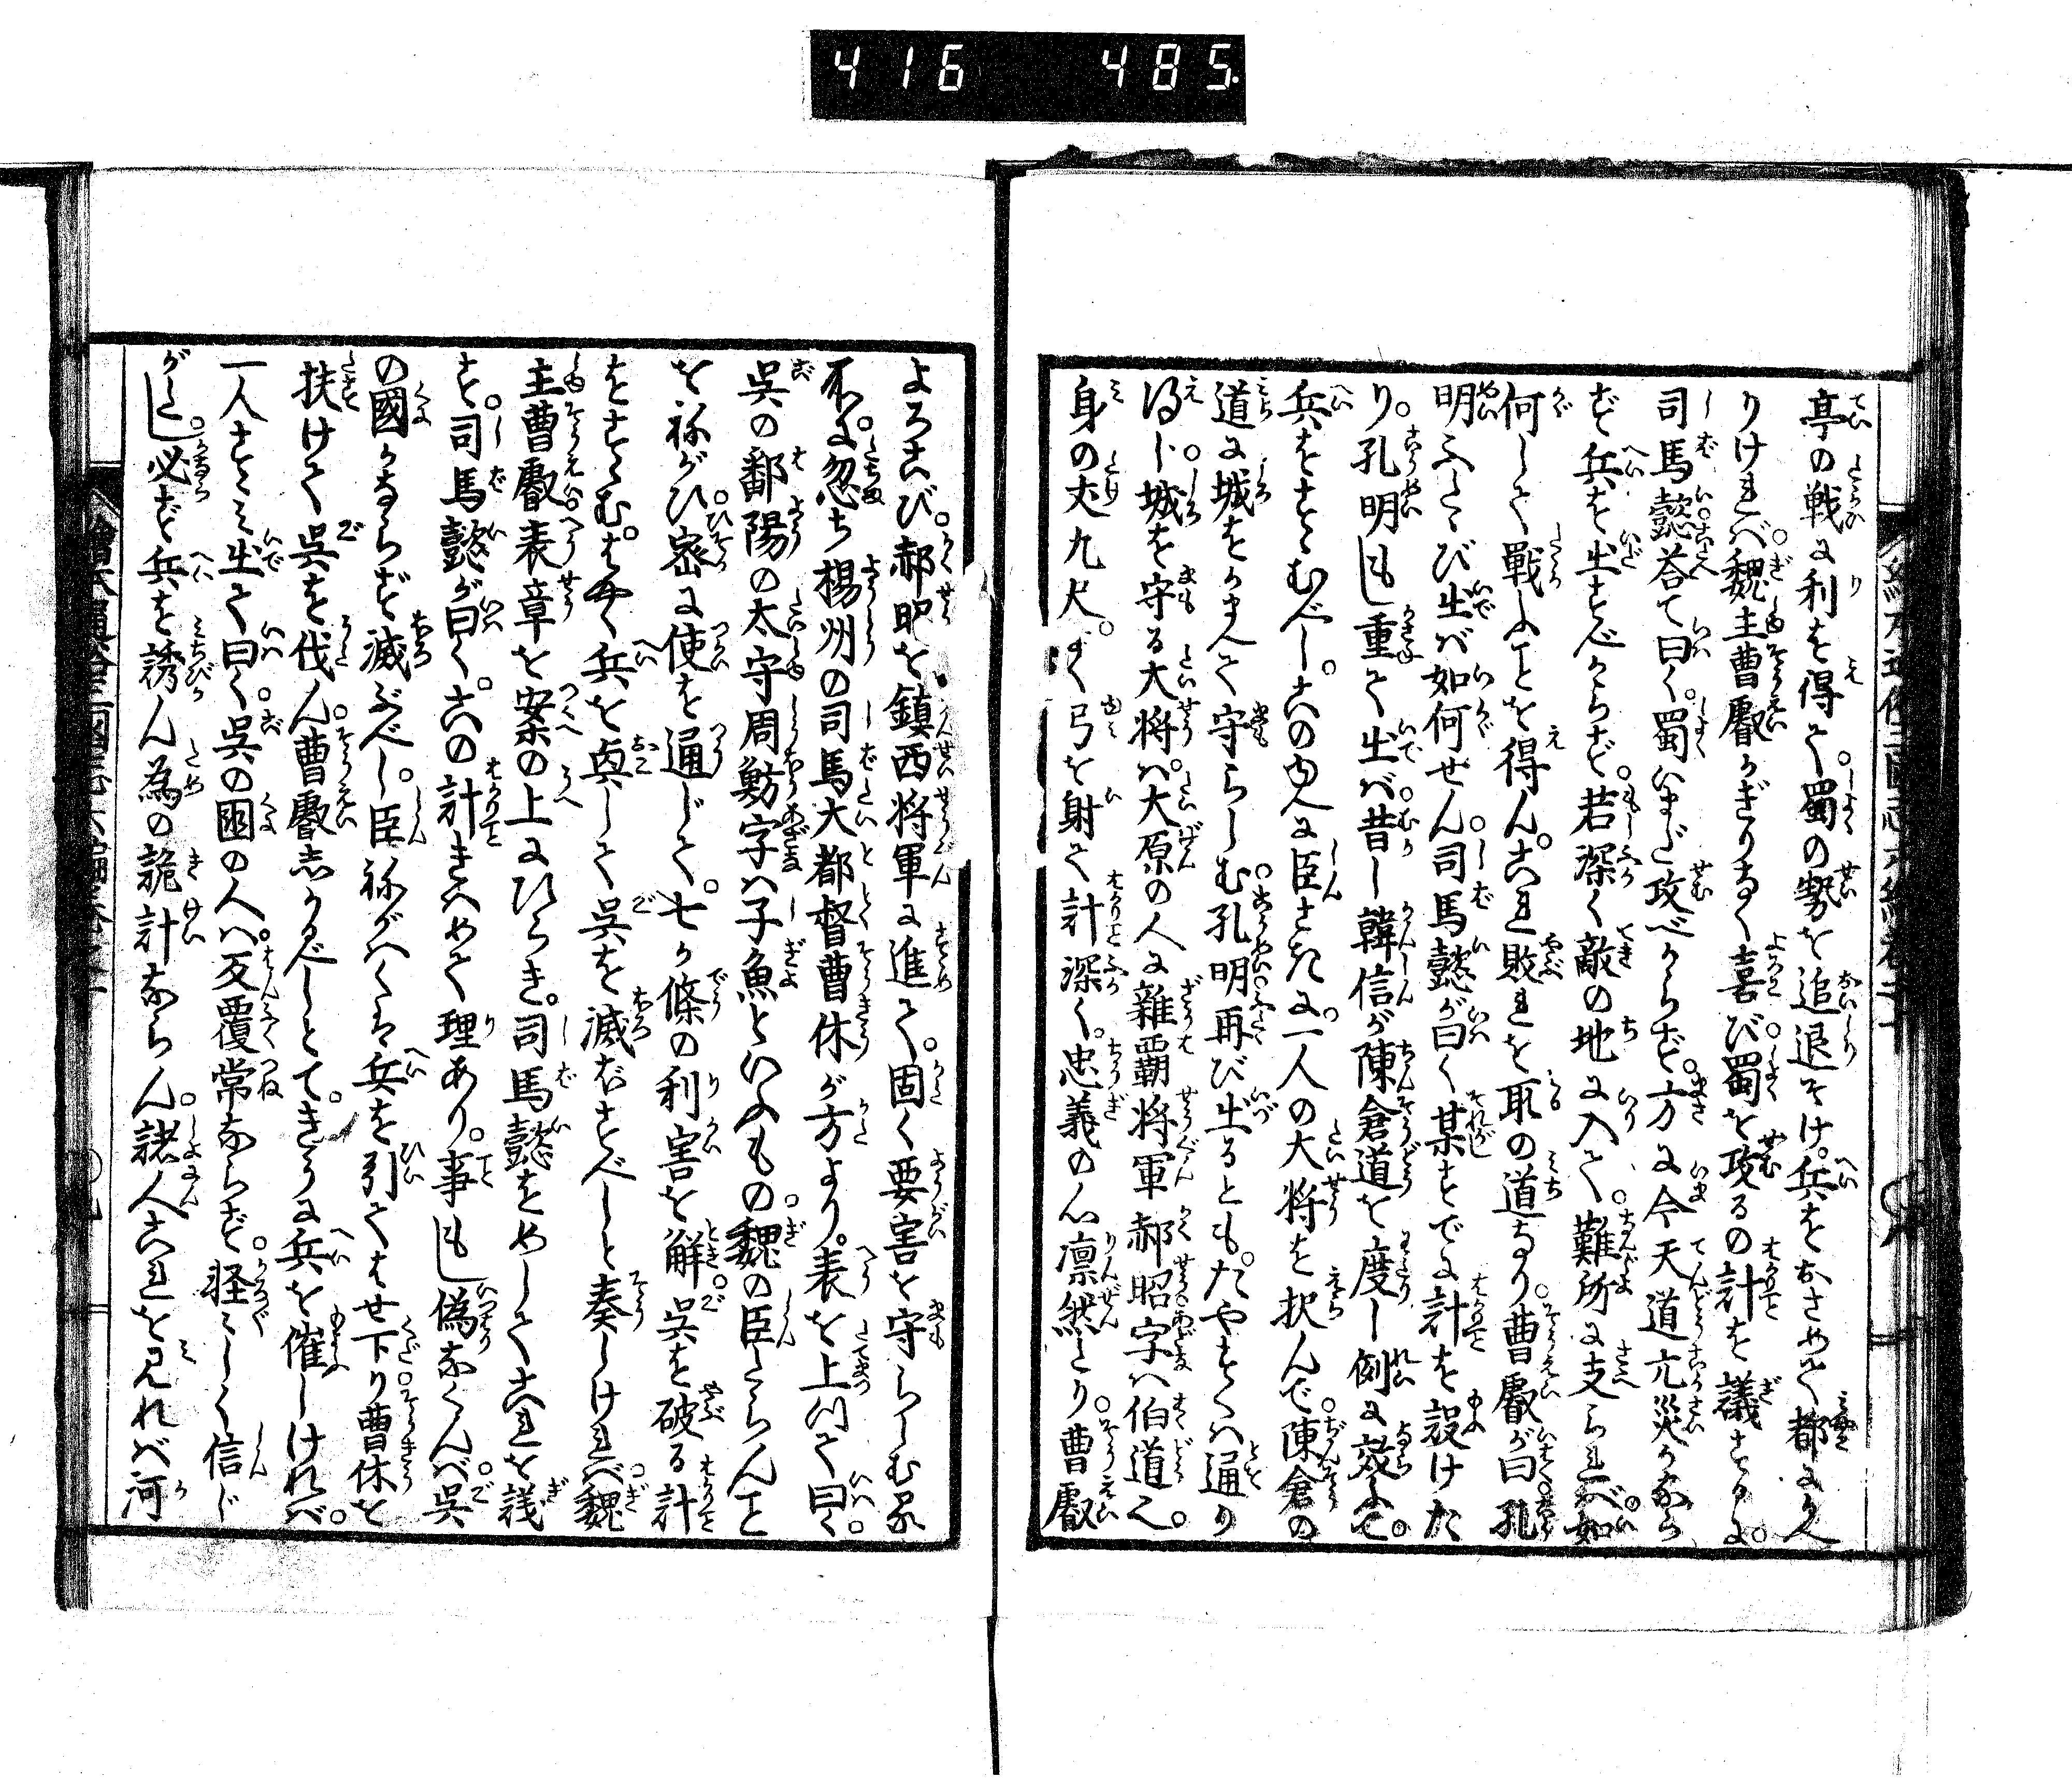 416 485.
亭の戦に利を得て。蜀の勢を追退そけ。兵をおさめて都にかへ
りければ。魏主曹叡かぎりなく喜び。蜀を攻るの計を議するに。
司馬懿答て曰く。蜀いまだ攻べからず。方に今天道亢災かなら
ず兵を出すべからず。若深く敵の地に入て。難所に支られば。如
何して戦ふことを得ん。これ敗れを取の道なり。曹叡が曰孔
明ふたゝび出ば如何せん。司馬懿が曰く某すでに計を設けた
り。孔明もし重て出ば。昔し韓信が陳倉道を度し例に效ふて。
兵をすゝむべし。この内に臣さきに。一人の大将を択んで。陳倉の
道に城をかまへて守らしむ。孔明再び出るとも。たやすくは通り
得じ。城を守る大将は。大原の人に雑覇将軍郝昭字は伯道也。
身の丈九尺。よく弓を射て計深く。忠義の心凛然たり。曹叡
よろこび。郝昭を鎮西将軍に進て。固く要害を守らしむ。
忽ち楊州の司馬大都督曹休が方より。表を上つて曰く。
呉の鄱陽の太守周魴字は子魚といふもの。魏の臣たらんこと
をねがひ。密に使を通じて。七か條の利害を解。呉を破る計
をすゝむ。はやく兵を興して呉を滅ぼすべしと奏しければ。魏
主曹叡表章を案の上にひらき。司馬懿をめしてこれを議
す。司馬懿が曰く。この計きはめて理あり。事もし偽なくんば。呉
の國かならず滅ぶべし。臣ねがはくは兵を引てはせ下り曹休を
扶けて呉を伐ん。曹叡しかるべしとて。きうに兵を催しければ。
一人すゝみ出て曰く。呉の國の人は。反覆常ならず。軽々しく信じ
がたし。必ず兵を誘ん為の詭計ならん。諸人これを見れば河